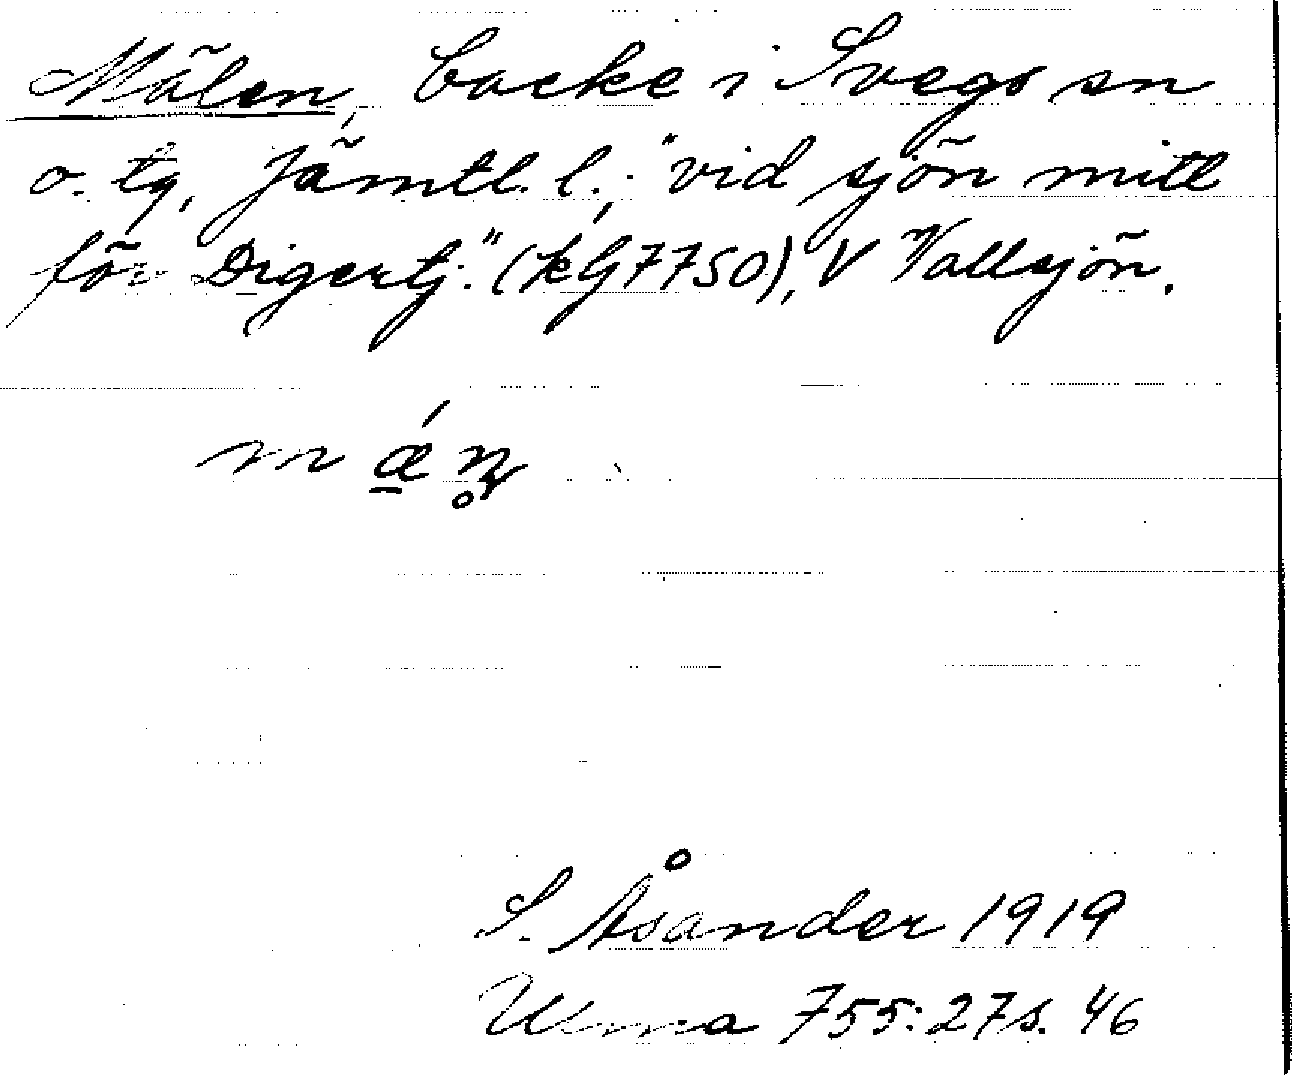 Mälen, backe i Svegs sn
o. tg, Jämtl. l.; "vid sjön mitt
för Digertj." (kG7750), V Vallsjön.
m ǽ n̥
S. Åsander 1919
Ulma 755:27 s. 46